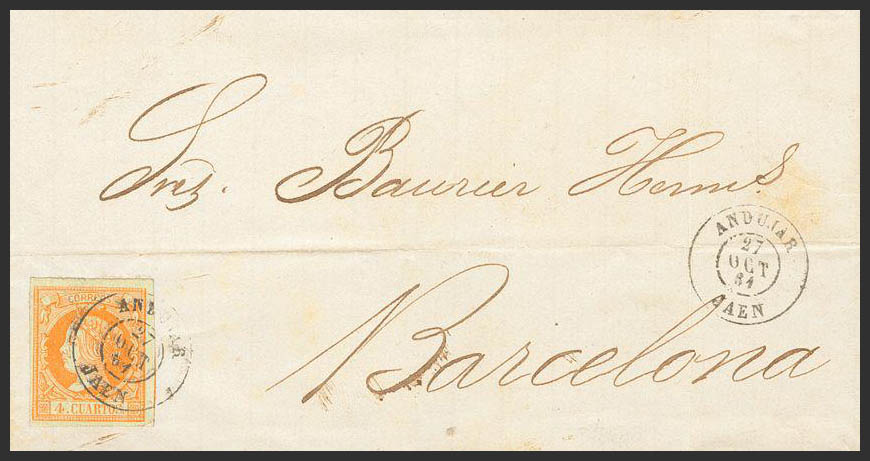 Sres. Baurier Hermˢ.
ANDUJAR
27
OCT
61
JAEN
Barcelona
CORREOS
ANDUJAR
27
OCT
61
JAEN
4 CUARTOS